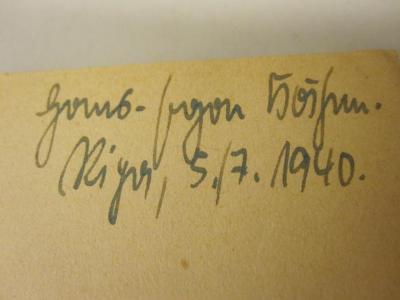 Hans-Egon Böhm.
Riga, 5./7. 1940.